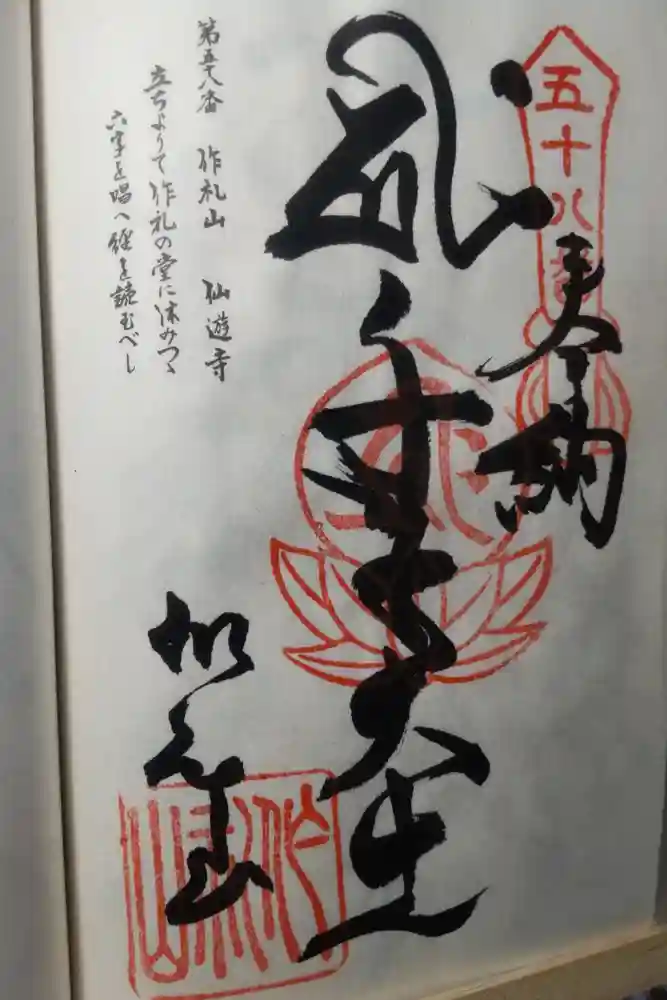 五十八番
奉納
千手大
第五十八番 作礼山 仙遊寺
立ちよりて作礼の堂に休みつゝ
六字を唱へ経を読むべし